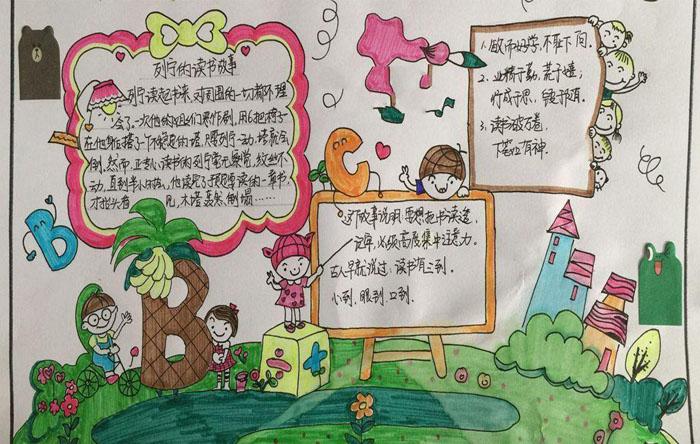 列宁的读书故事
列宁读起书来,对周围的一切都不理
会了。一次他的姐妹们恶作剧,用6把椅子
在他身后搭了一个不稳定的塔,只要列宁一动,塔就会
倒,然而,正专心读书的列宁毫无察觉,纹丝不
动,直到半小时后,他读完了预定要读的一章书,
才抬头看 见,木塔轰然倒塌……
1、敏而好学,不耻下问。
2、业精于勤,荒于嬉;
行成于思,毁于随。
3、读书破万卷,
下笔如有神。
B
C
这个故事说明:要想把书读透、
记牢,必须高度集中注意力。
古人早就说过:读书有三到,
心到、眼到、口到。
B
÷
+